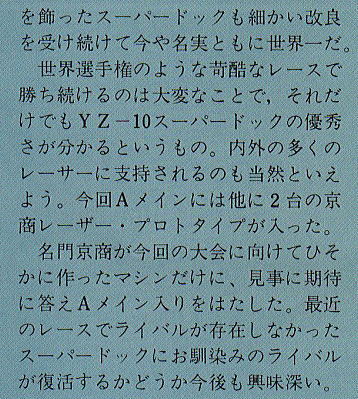 を飾ったスーパードックも細かい改良
を受け続けて今や名実ともに世界一だ。
　世界選手権のような苛酷なレースで
勝ち続けるのは大変なことで，それだ
けでもＹＺ－10スーパードックの優秀
さが分かるというもの。内外の多くの
レーサーに支持されるのも当然といえ
よう。今回Ａメインには他に２台の京
商レーザー・プロトタイプが入った。
　名門京商が今回の大会に向けてひそ
かに作ったマシンだけに、見事に期待
に答えＡメイン入りをはたした。最近
のレースでライバルが存在しなかった
スーパードックにお馴染みのライバル
が復活するかどうか今後も興味深い。